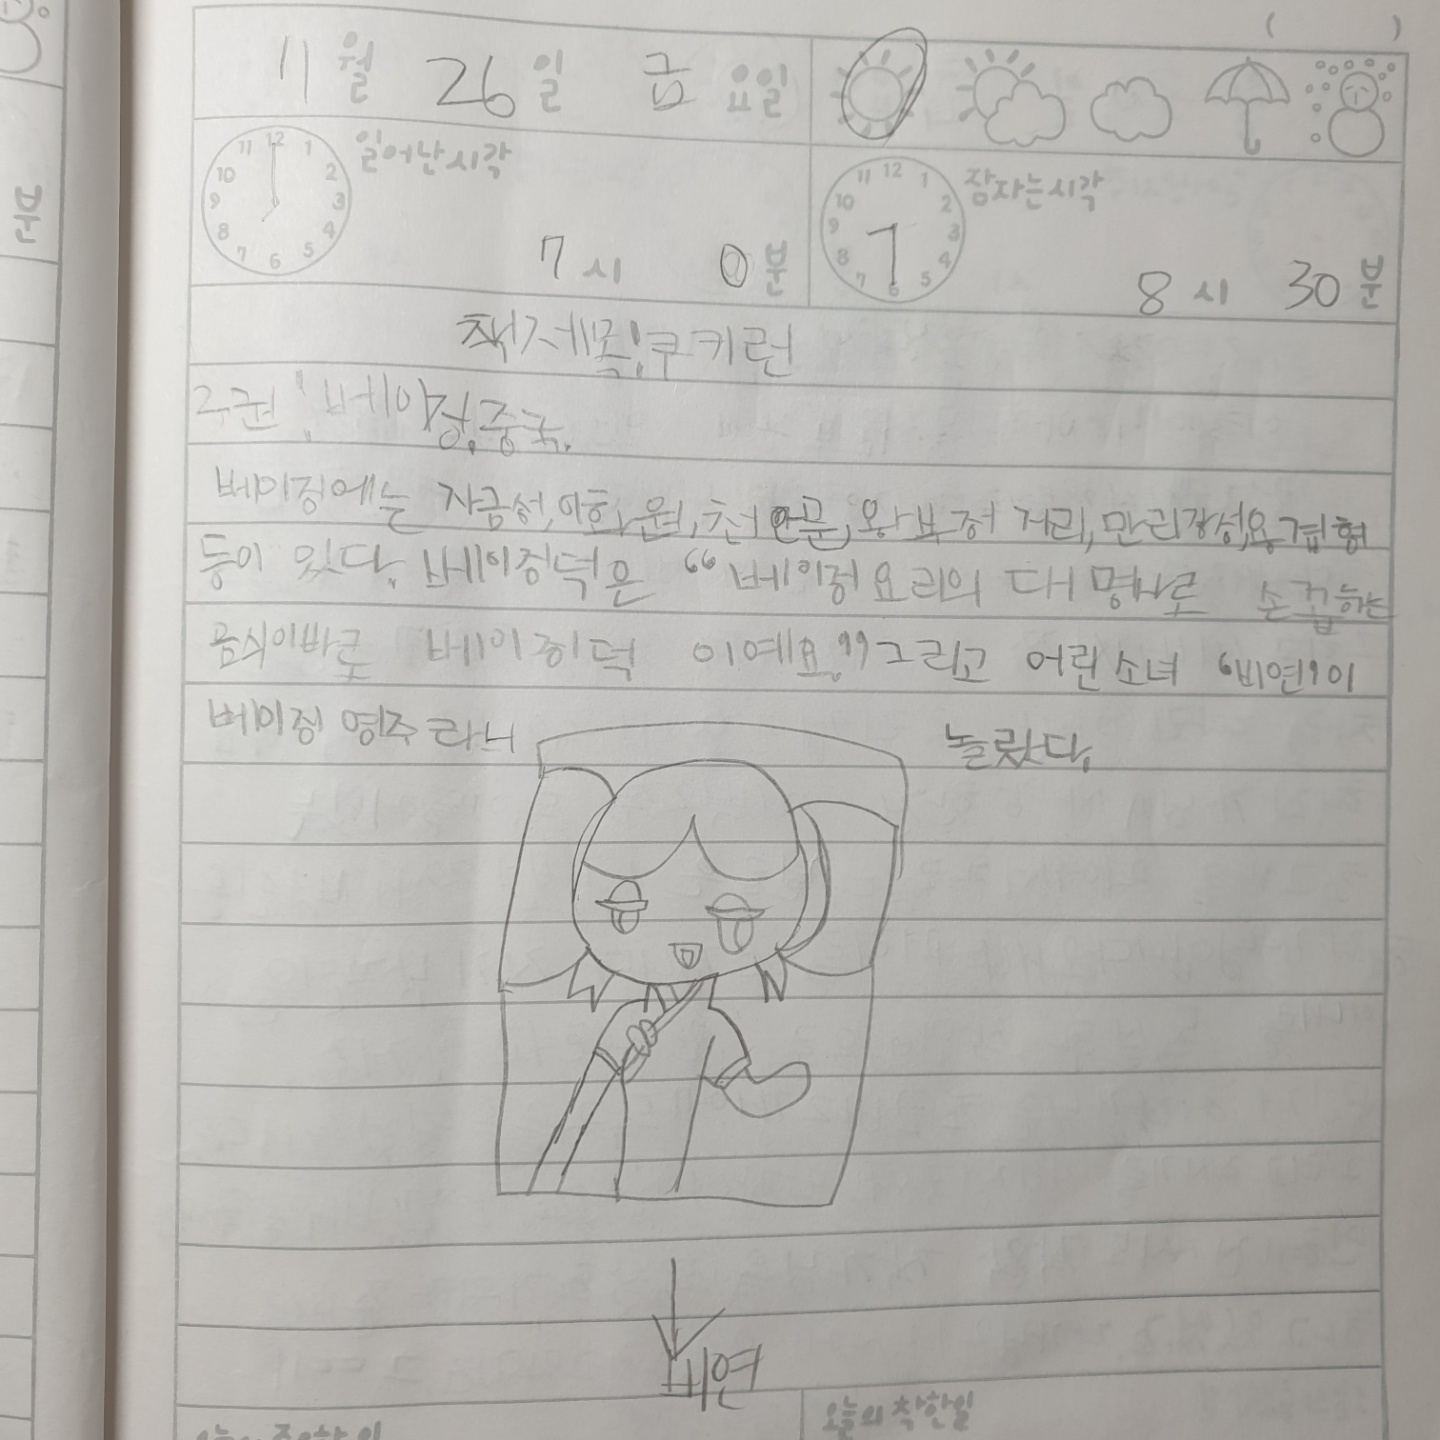 ( )
11월 26일 금요일
일어난시각
7시 0분
잠자는시각
8시 30분
책제목:쿠키런
2권:베이징,중국.
베이징에는 자금성,이화원,천안문,왕부정 거리,만리장성,용경협
등이 있다. 베이징덕은 "베이징요리의 대명사로 손꼽하는
음식이바로 베이징덕 이예요." 그리고 어린소녀 '비연'이
베이징 영주라니 놀랐다.
비연
오늘의 착한일
분